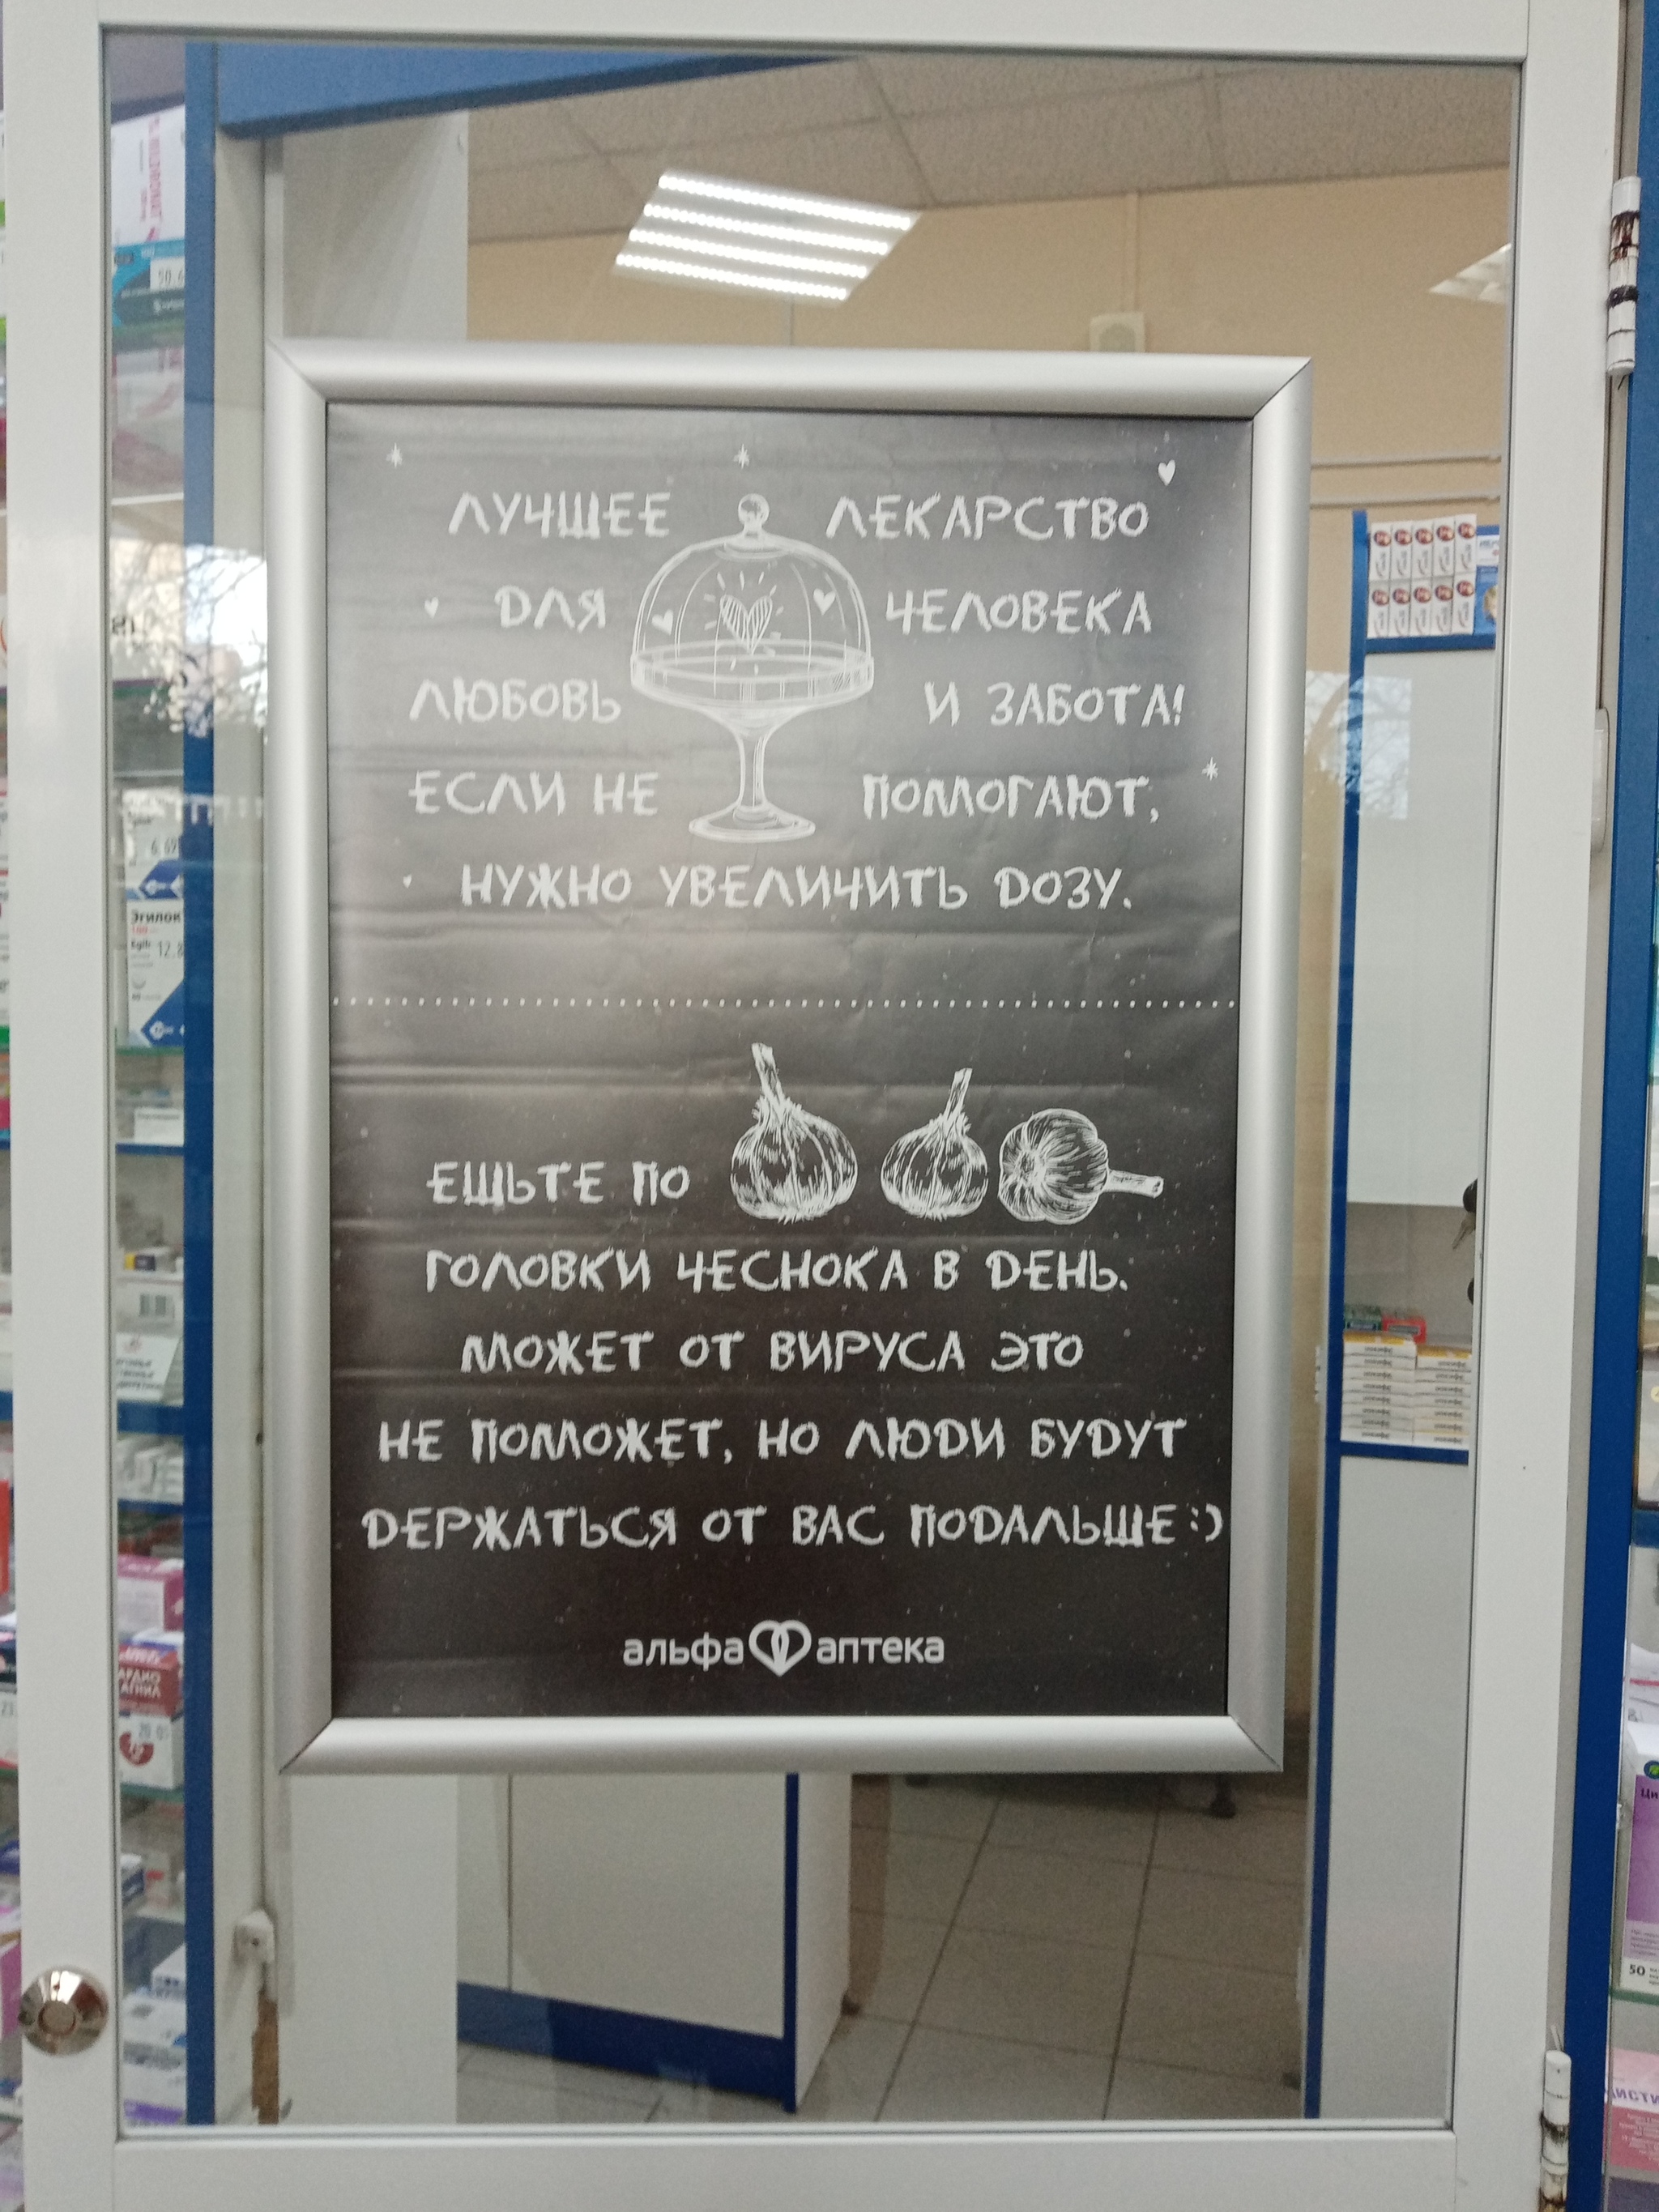 ЛУЧШЕЕ ЛЕКАРСТВО
ДЛЯ ЧЕЛОВЕКА
ЛЮБОВЬ И ЗАБОТА!
ЕСЛИ НЕ ПОМОГАЮТ,
НУЖНО УВЕЛИЧИТЬ ДОЗУ.
ЕШЬТЕ ПО
ГОЛОВКИ ЧЕСНОКА В ДЕНЬ.
МОЖЕТ ОТ ВИРУСА ЭТО
НЕ ПОМОЖЕТ, НО ЛЮДИ БУДУТ
ДЕРЖАТЬСЯ ОТ ВАС ПОДАЛЬШЕ :)
альфа аптека
Эгилок
12.8
20.0
50